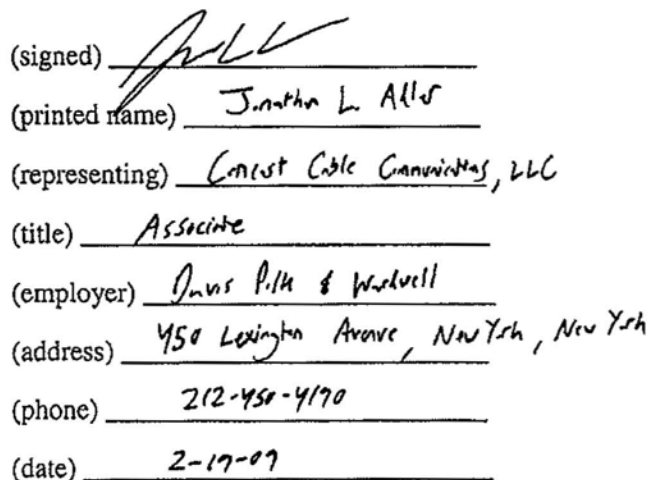 (signed)
(printed name) Jonathan L. Adler
(representing) Comcast Cable Communications, LLC
(title) Associate
(employer) Davis Polk & Wardwell
(address) 450 Lexington Avenue, New York, New York
(phone) 212-450-4170
(date) 2-17-09